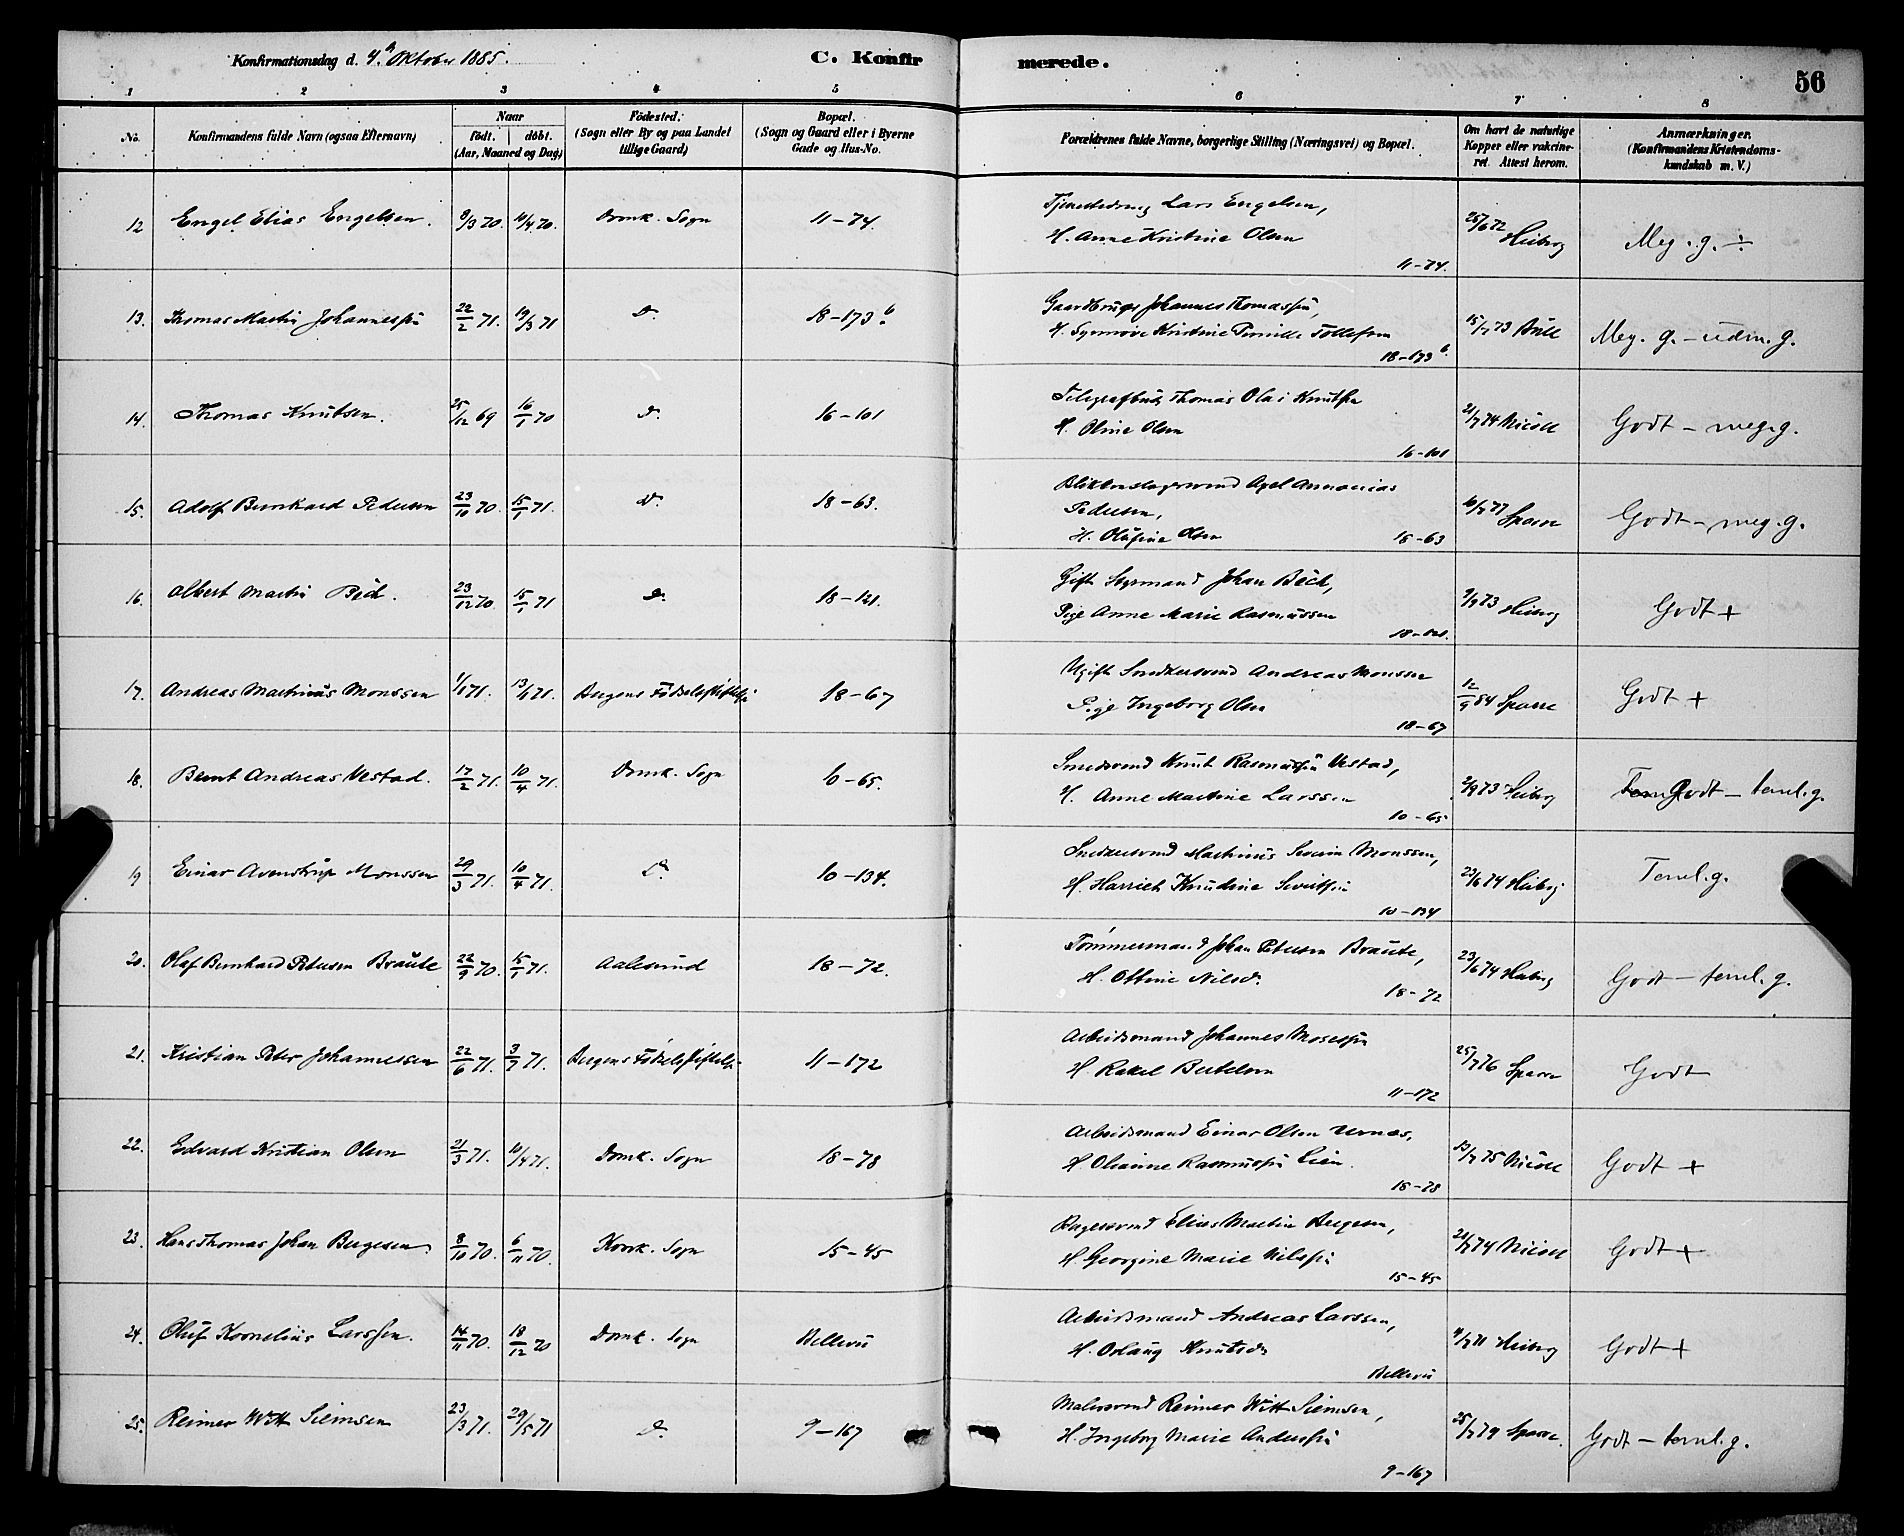 Konfirmationsdag d. 4de Oktober 1885.
C. Konfirmerede.
56
1 2 3 4 5 6 7 8
No.
Konfirmandens fulde Navn (ogsaa Efternavn)
Naar
födt. döbt.
(Aar, Maaned og Dag)
Födested:
(Sogn eller By og paa Landet
tillige Gaard)
Bopæl.
(Sogn og Gaard eller i Byerne
Gade og Hus-No.
Forældrenes fulde Navne, borgerlige Stilling (Næringsvei) og Bopæl.
Om havt de naturlige
Kopper eller vakcine-
ret. Attest herom.
Anmærkninger.
(Konfirmandens Kristendoms-
kundskab m. V.)
12 Engel Elias Engelsen. 9/3 70. 10/4 70. Domk. Sogn 11-74. Lars Engelsen,
H. Anne Kristine Olsen
11-74.
25/6 72 Heiberg Meg. g. ÷
13. Thomas Martin Johannessen 22/2 71. 19/3 71 Do. 18-173b. Gaardbruger Johannes Thomassen,
H. Synnøve Kristine Pernille Tollefsen
18-173b.
15/7 73 Meg. g. - udm. g.
14. Thomas Knutsen. 25/12 69 16/1 70 Do. 16-101 Telegrafbud Thomas Olai Knutsen
H. Oline Olsen
16-101
21/7 74 Nicoll Godt - meg. g.
15. Adolf Bernhard Pedersen 23/10 70. 15/1 71. Do. 18-63. Blikkenslagersvend Axel Annanias
Pedersen,
H. Olufine Olsen 18-63
10/7 77 Sparre Godt - meg. g.
16. Albert Martin Beck. 23/12 70 15/1 71 Do. 18-121. Gift Styrmand Johan Beck,
Pige Anne Marie Rasmussen
18-121.
2/9 73 Heiberg Godt +
17. Andreas Martinus Monssen 1/1 71. 13/1 71. Bergens Födselsstiftelse 18-67 Ugift Snedkersvend Andreas Monssen
Pige Ingeborg Olsen
18-67
12/9 84 Sparre Godt +
18. Bernt Andreas Vestad. 17/2 71. 10/4 71. Domk. Sogn 10-65. Smedsvend Knut Rasmussen Vestad,
H. Anne Martine Larssen
10-65
2/9 73 Heiberg Teml Godt - teml. g.
19 Einar Avenstrup Monssen 29/3 71. 10/4 71. Do. 10-134. Snedkersvend Martinus Severin Monssen,
H. Harriet Knudine Sivertsen
10-134
23/6 74 Heiberg Teml. g.
20. Olaf Bernhard Petersen Braute 22/9 70. 15/1 71. Aalesund 18-72. Tømmermand Johan Petersen Braute,
H. Ottine Nilsd.
18-72
23/6 74 Heiberg Godt - teml. g.
21. Kristian Peter Johannessen 22/6 71. 3/7 71. Bergens Födselsstiftelse 11-172 Arbeidsmand Johannes Mosessen
H. Rakel Bertelsen
11-172
25/7 76 Sparre Godt
22. Edvard Kristian Olsen 21/3 71. 10/4 71. Domk. Sogn 18-78 Arbeidsmand Einar Olsen
H. Olianne Rasmussen Lien.
18-78
13/7 75 Nicoll Godt +
23. Hans Thomas Johan Bergesen. 8/10 70. 6/11 70. Korsk. Sogn 15-45 Bagersvend Elias Martin Bergesen,
H. Georgine Marie Nilssen
15-45
21/7 74 Nicoll Godt +
24. Oluf Kornelius Larssen. 14/11 70. 18/12 70 Domk. Sogn Bellevu Arbeidsmand Andreas Larssen,
H. Oslaug Knutsd.
Bellevu
4/7 71 Heiberg Godt +
25. Reimer Witt Siemsen 23/3 71. 29/5 71 Do. 9-167 Malersvend Reimer Witt Siemsen,
H. Ingeborg Marie Anderssen
9-167
25/7 79 Sparre. Godt - teml. g.